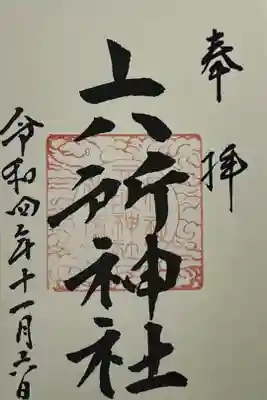 奉拝
六所神社
令和四年十一月六日